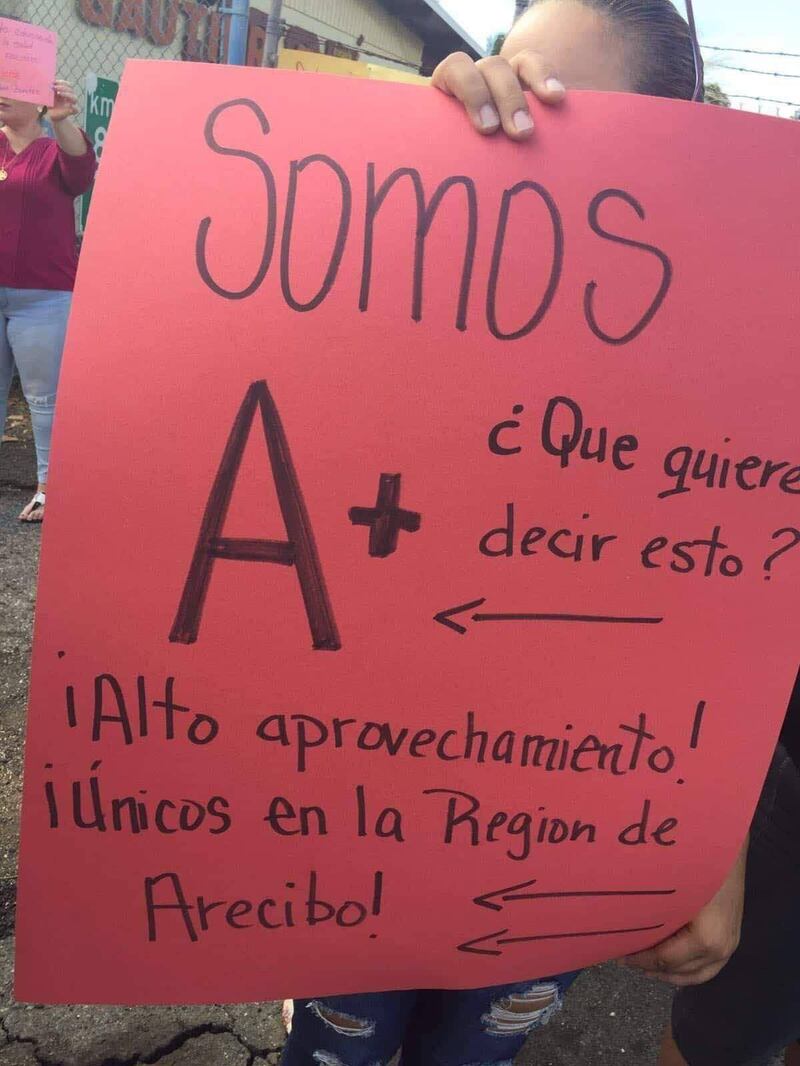 Somos
A+
¿Que quiere
decir esto?
¡Alto aprovechamiento!
¡Únicos en la Region de
Arecibo!
km
8
la salud